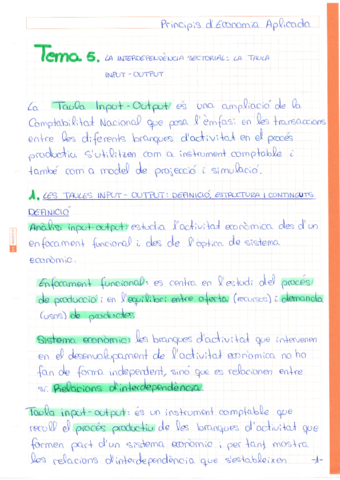 Principis d'Economia Aplicada
Tema 5. LA INTERDEPENDÈNCIA SECTORIAL: LA TAULA
INPUT-OUTPUT
La Taula Input-Output és una ampliació de la
Comptabilitat Nacional que posa l'èmfasi en les transaccions
entre les diferents branques d'activitat en el procés
productiu. S'utilitzen com a instrument comptable i
també com a model de projecció i simulació.
1. LES TAULES INPUT-OUTPUT: DEFINICIÓ, ESTRUCTURA I CONTINGUTS
DEFINICIÓ
Anàlisi input-output: estudia l'activitat econòmica des d'un
enfocament funcional i des de l'òptica de sistema
econòmic.
Enfocament funcional: es centra en l'estudi del procés
de producció i en l'equilibri entre oferta (recursos) i demanda
(usos) de productes
Sistema econòmic: les branques d'activitat que intervenen
en el desenvolupament de l'activitat econòmica no ho
fan de forma independent, sinó que es relacionen entre
si. Relacions d'interdependència.
Taula input-output: és un instrument comptable que
recull el procés productiu de les branques d'activitat que
formen part d'un sistema econòmic i per tant mostra
les relacions d'interdependència que s'estableixen -1-